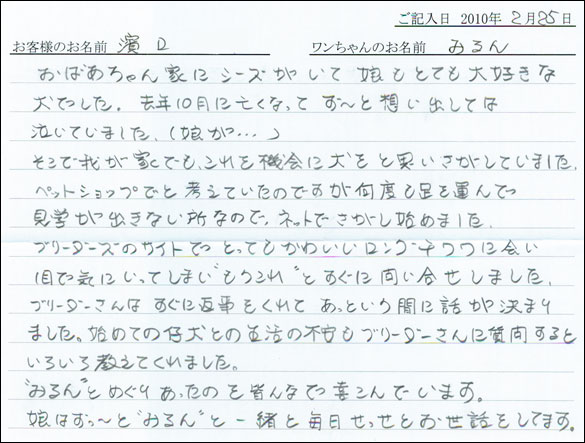 ご記入日 2010年 2月25日
お客様のお名前 濱口 ワンちゃんのお名前 みるん
おばあちゃん家にシーズがいて娘もとても大好きな
犬でした。去年10月に亡くなってず〜と想い出しては
泣いていました。(娘が…)
そこで我が家でも、これを機会に犬をと思いさがしていました。
ペットショップでと考えていたのですが何度も足を運んで
見学が出きない所なので、ネットでさがし始めました。
ブリーダーズのサイトでとってもかわいいロングチワワに会い
1目で気にいってしまい"もうこれ"とすぐに問い合せしました。
ブリーダーさんはすぐに返事をくれてあっという間に話が決まり
ました。始めての仔犬との生活の不安もブリーダーさんに質問すると
いろいろ教えてくれました。
"みるん"とめぐりあったのを皆んなで喜こんでいます。
娘はずっ〜と"みるん"と一緒と毎日せっせとお世話をしてます。